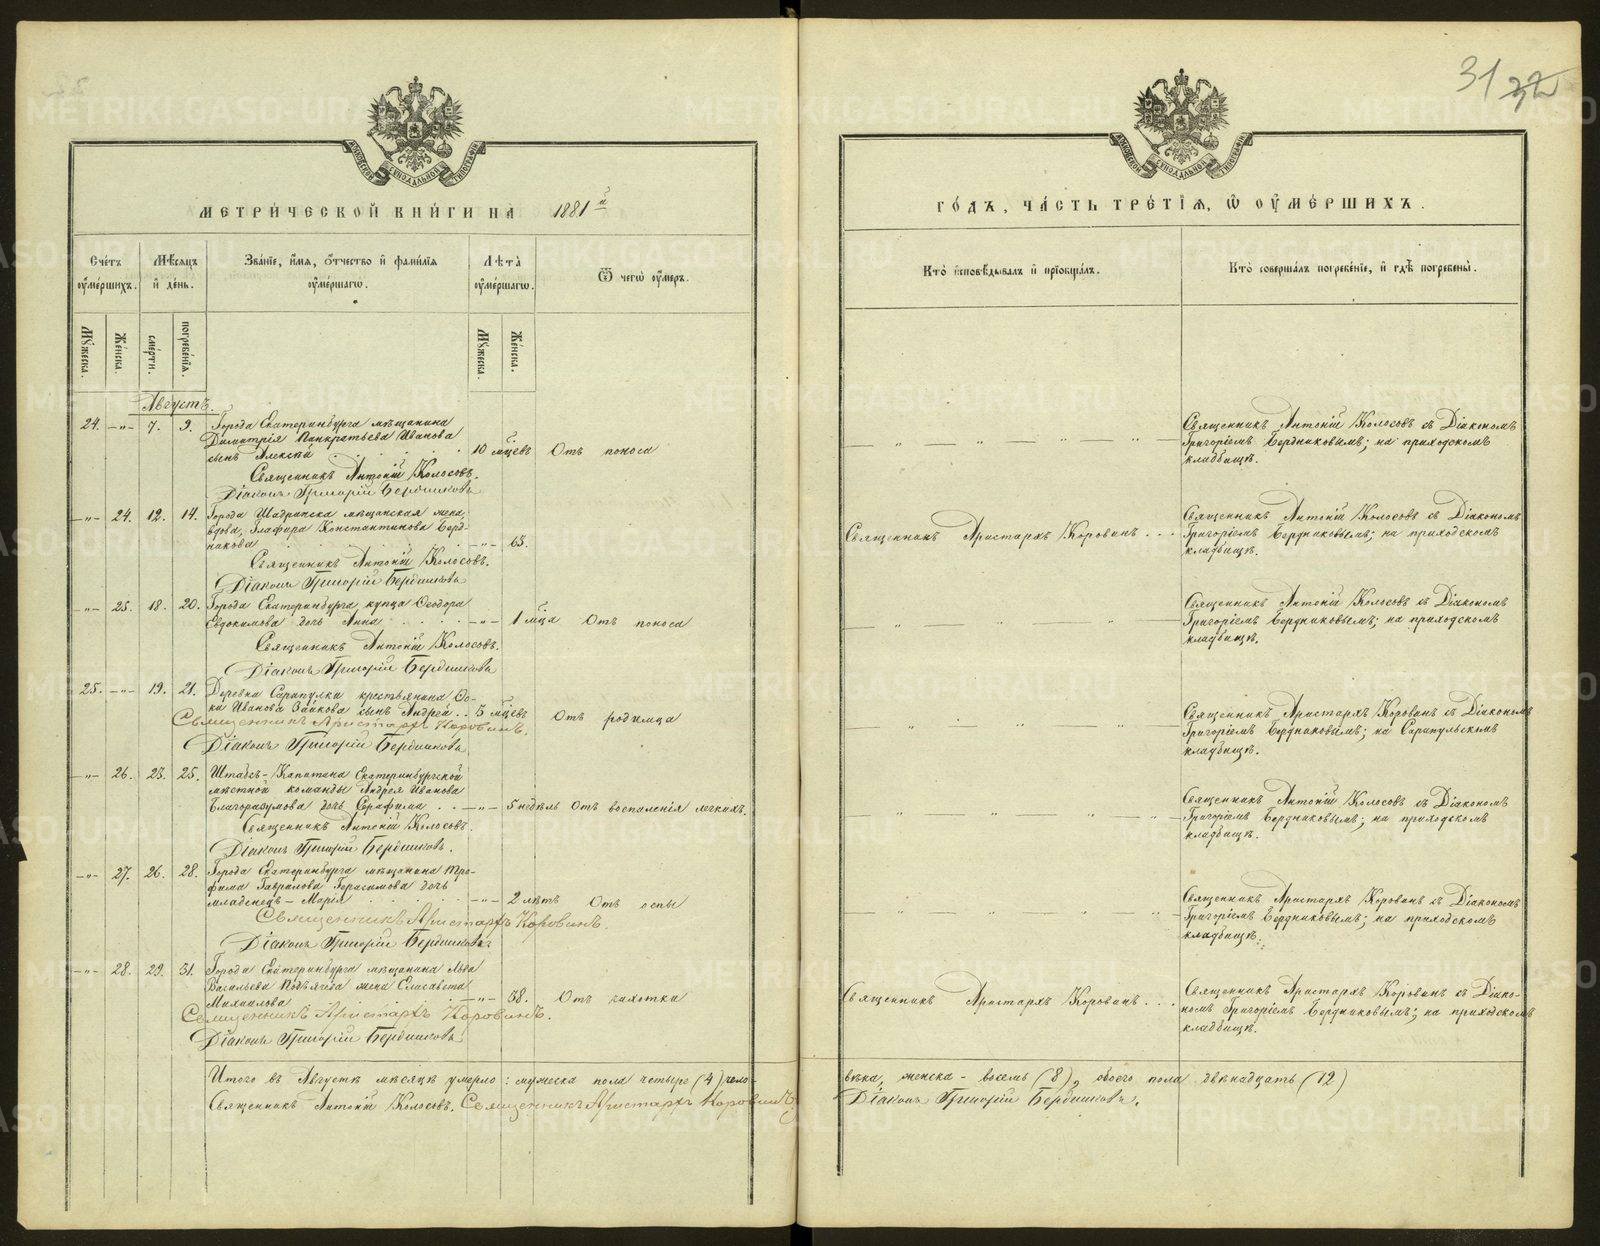 31 32
МЕТРИ́ЧЕСКОЙ КНИ́ГИ НА 1881й
ГО́ДЪ, ЧА́СТЬ ТРЕ́ТІѦ, Ѿ ОУМЕ́РШИХЪ.
Сче́тъ оуме́ршихъ.
Мѣ́сяцъ и҆ де́нь.
Зва́нїе, и҆́мѧ, ѻ҆́тчество и҆ фами́лїѧ оуме́ршагѡ.
Лѣ́та оуме́ршагѡ.
Ѿ чегѡ̀ оу́меръ.
Кто̀ и҆сповѣ́дывалъ и҆ прїобща́лъ.
Кто̀ соверша́лъ погребе́нїе, и҆ гдѣ̀ погребены̀.
Мꙋ́жеска.
Же́нска.
сме́рти.
погребе́нїѧ.
Мꙋ́жеска.
Же́нска.
Августъ.
24. —"— 7. 9. Города Екатеринбурга мѣщанина
Димитрія Панкратьева Иванова
сынъ Алексѣй 10 м͠цевъ Отъ поноса
Священникъ Антоній Колосовъ.
Діаконъ Григорій Бердниковъ
Священникъ Антоній Колосовъ съ Діакономъ
Григоріемъ Бердниковымъ; на приходскомъ
кладбищѣ.
—"— 24. 12. 14. Города Шадринска мѣщанская жена,
вдова, Глафира Константинова Берд-
никова —"— 63.
Священникъ Антоній Колосовъ.
Діаконъ Григорій Бердниковъ
Священникъ Аристархъ Коровинъ . . .
Священникъ Антоній Колосовъ съ Діакономъ
Григоріемъ Бердниковымъ; на приходскомъ
кладбищѣ.
—"— 25. 18. 20. Города Екатеринбурга купца Ѳеодора
Евдокимова дочь Анна —"— 1 м͠ца Отъ поноса
Священникъ Антоній Колосовъ.
Діаконъ Григорій Бердниковъ
Священникъ Антоній Колосовъ съ Діакономъ
Григоріемъ Бердниковымъ; на приходскомъ
кладбищѣ.
25. —"— 19. 21. Деревни Сарапулки крестьянина Ѳо-
ки Иванова Зайкова сынъ Андрей . . 5 м͠цевъ Отъ родимца
Священникъ Аристархъ Коровинъ.
Діаконъ Григорій Бердниковъ
Священникъ Аристархъ Коровинъ съ Діакономъ
Григоріемъ Бердниковымъ; на Сарапульскомъ
кладбищѣ.
—"— 26. 23. 25. Штабсъ-Капитана Екатеринбургской
мѣстной команды Андрея Иванова
Благоразумова дочь Серафима . . —"— 5 недѣль Отъ воспаленія легкихъ.
Священникъ Антоній Колосовъ.
Діаконъ Григорій Бердниковъ.
Священникъ Антоній Колосовъ съ Діакономъ
Григоріемъ Бердниковымъ; на приходскомъ
кладбищѣ.
—"— 27. 26. 28. Города Екатеринбурга мѣщанина Тро-
фима Гаврилова Герасимова дочь
младенецъ – Марія —"— 2 лѣтъ Отъ оспы
Священникъ Аристархъ Коровинъ.
Діаконъ Григорій Бердниковъ
Священникъ Аристархъ Коровинъ съ Діакономъ
Григоріемъ Бердниковымъ; на приходскомъ
кладбищѣ.
—"— 28. 29. 31. Города Екатеринбурга мѣщанина Льва
Васильева жена Елисавета
Михаилова —"— 38. Отъ чахотки
Священникъ Аристархъ Коровинъ.
Діаконъ Григорій Бердниковъ
Священникъ Аристархъ Коровинъ . . .
Священникъ Аристархъ Коровинъ съ Діако-
номъ Григоріемъ Бердниковымъ; на приходскомъ
кладбищѣ.
Итого въ Августѣ мѣсяцѣ умерло: мужеска пола четыре (4) чело-
вѣка, женска – восемь (8), обоего пола двѣнадцать (12)
Священникъ Антоній Колосовъ. Священникъ Аристархъ Коровинъ
Діаконъ Григорій Бердниковъ.
METRIKI.GASO-URAL.RU